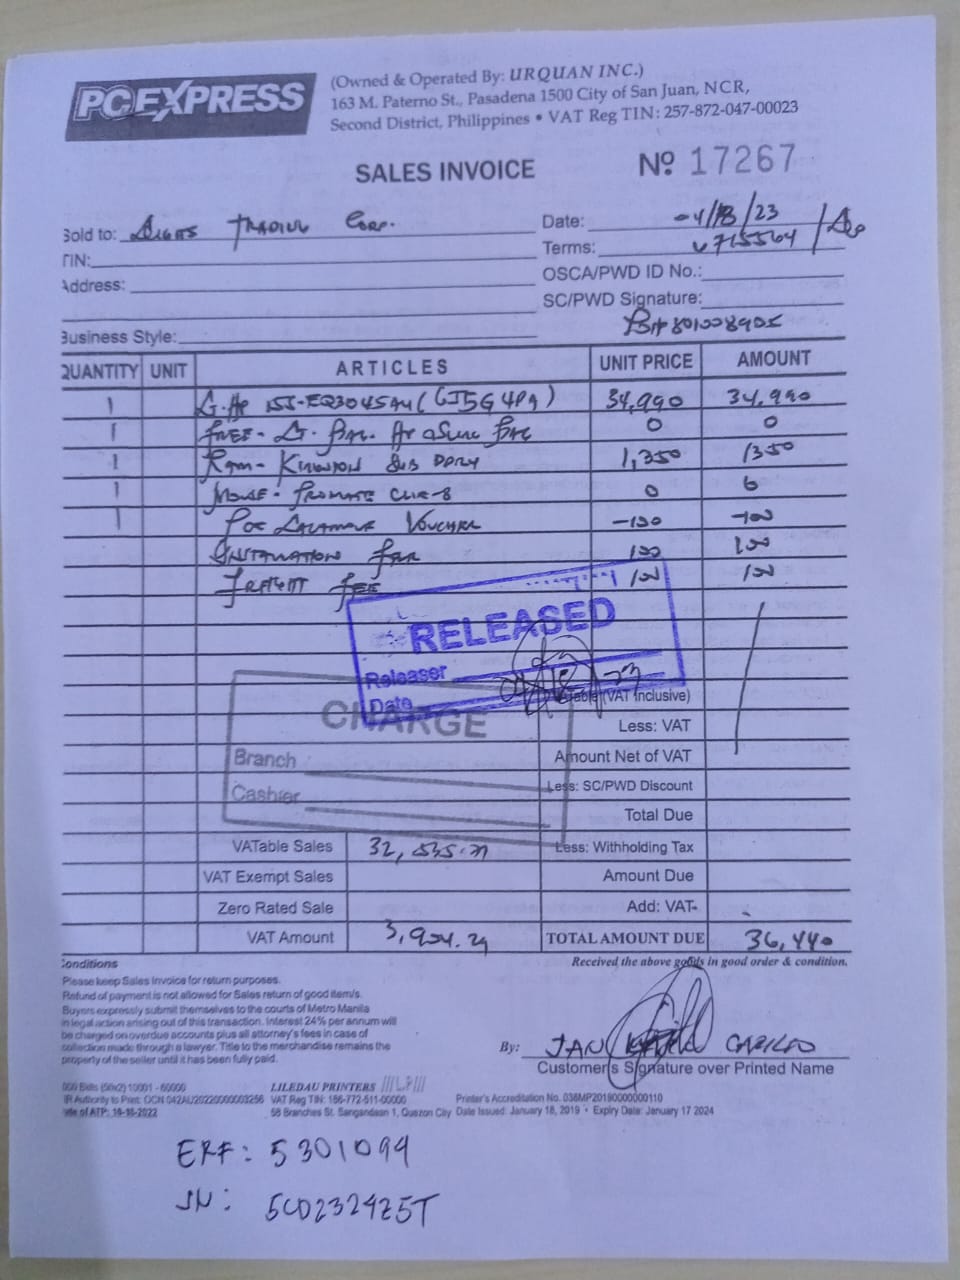 PCEXPRESS
(Owned & Operated By: URQUAN INC.)
163 M. Paterno St., Pasadena 1500 City of San Juan, NCR,
Second District, Philippines • VAT Reg TIN: 257-872-047-00023
SALES INVOICE
Nº 17267
Sold to: Trading Corp.
Date: 04/18/23
TIN:
Terms: 6715564
Address:
OSCA/PWD ID No.:
SC/PWD Signature:
Business Style:
QUANTITY UNIT ARTICLES UNIT PRICE AMOUNT
1 G. HP 15S-EQ3045AU (6J5G4PA) 34,990 34,990
1 FREE - 0 0
1 RAM - Kingston 8GB DDR4 1,350 1350
1 Mouse - Promate CLIX-8 0 0
1 Lalamove Voucher -100 -100
Installation Fee 100 100
Freight Fee 100 100
RELEASED
Releaser
Date
(VAT Inclusive)
CHARGE
Less: VAT
Branch
Amount Net of VAT
Cashier
Less: SC/PWD Discount
Total Due
VATable Sales 32,535.71
Less: Withholding Tax
VAT Exempt Sales
Amount Due
Zero Rated Sale
Add: VAT
VAT Amount 3,904.29
TOTAL AMOUNT DUE 36,440
Conditions
Received the above goods in good order & condition.
Please keep Sales Invoice for return purposes.
Refund of payment is not allowed for Sales return of good item/s.
Buyers expressly submit themselves to the courts of Metro Manila
in legal action arising out of this transaction. Interest 24% per annum will
be charged on overdue accounts plus all attorney's fees in case of
collection made through a lawyer. Title to the merchandise remains the
property of the seller until it has been fully paid.
By: JAN
Customer's Signature over Printed Name
000 Bklts (50x2) 10001 - 60000
BIR Authority to Print: OCN 042AU20220000003256
Date of ATP: 10-18-2022
LILEDAU PRINTERS
VAT Reg TIN: 186-772-511-00000
58 Branches St. Sangandaan 1, Quezon City
Printer's Accreditation No. 038MP20190000000110
Date Issued: January 18, 2019 • Expiry Date: January 17 2024
ERF: 5301094
SN: 5CD232425T